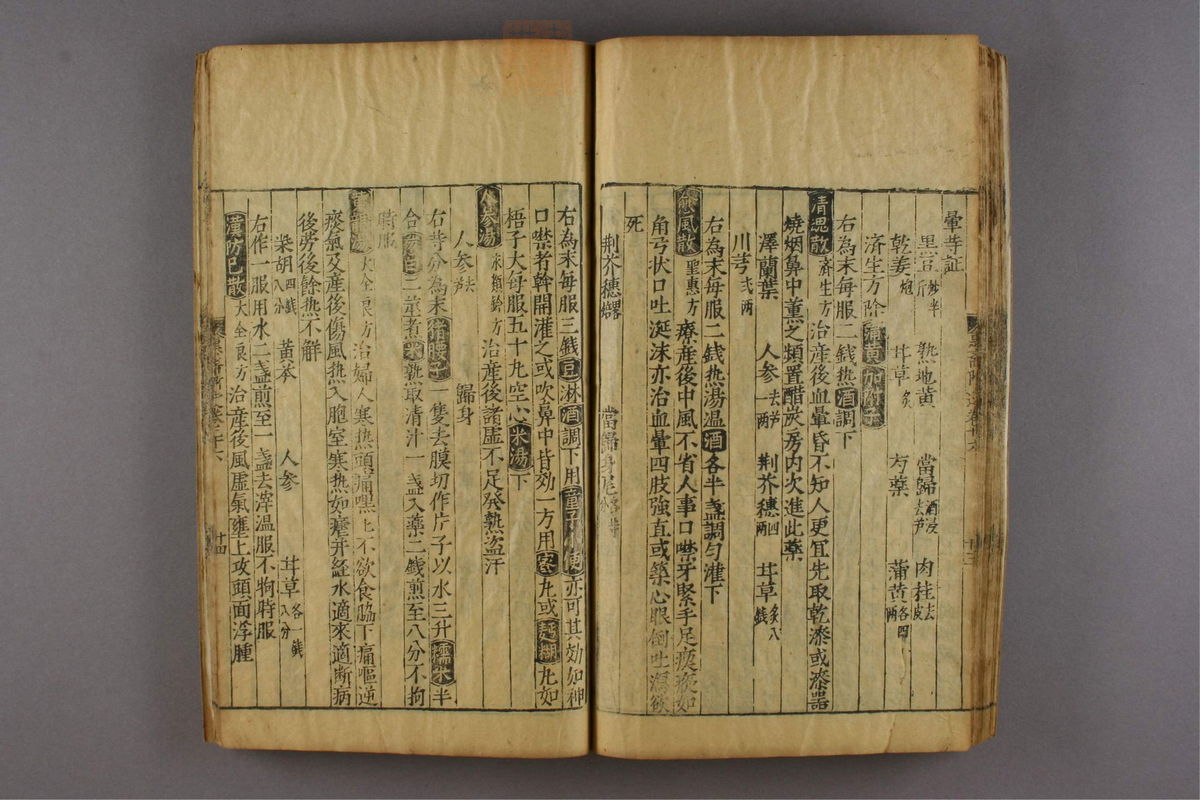 暈等証
黑豆炒半斤 熟地黃 當歸去芦酒浸 肉桂去皮
乾姜炮 甘草炙 芍藥 蒲黃各四兩
濟生方除蒲黃加附子
右為末每服二錢熱酒調下
清魂散濟生方 治産後血暈昏不知人更宜先取乾漆或漆器
燒烟鼻中薰之頻置醋炭房内次進此藥
澤蘭葉 人參去芦一兩 荆芥穗四兩 甘草炙八錢
川芎弍兩
右為末每服二錢熱湯温酒各半盞調勻灌下
愈風散聖惠方 療産後中風不省人事口噤牙緊手足瘈瘲如
角弓状口吐涎沫亦治血暈四肢強直或築心眼倒吐瀉欲
死
荆芥穗 當歸身尾
右為末每服三錢豆淋酒調下用童子小便亦可其効如神
口噤者斡開灌之或吹鼻中皆効一方用蜜丸或麵糊丸如
梧子大每服五十丸空心米湯下
人參湯永類鈐方 治産後諸虛不足發熱盗汗
人參去芦 歸身
右等分為末猪腰子一隻去膜切作片子以水三升糯米半
合葱白二莖煮米熟取清汁一盞入藥二錢煎至八分不拘
時服
大全良方 治婦人寒熱頭痛嘿上不欲食脇下痛嘔逆
痰氣及産後傷風熱入胞室寒熱如瘧并經水適來適断病
後勞後餘熱不解
柴胡四錢八分 黄芩 人參 甘草各一錢八分
右作一服用水二盞煎至一盞去滓温服不狗時服
漢防已散大全良方 治産後風虚氣壅上攻頭面浮腫
十四